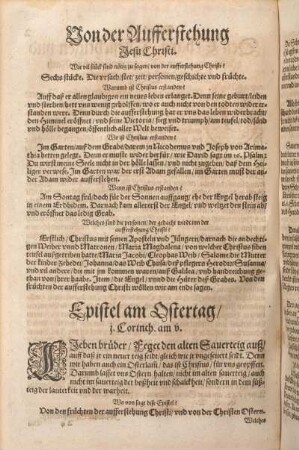 Von der Aufferstehung
Jesu Christi.
Wie vil stück sind nütz zu sagen von der aufferstehung Christi?
Sechs stücke. Die ursach/stet/zeit/personen/geschichte und früchte.
Warumb ist Christus erstanden?
Auff daß er allen glaubigen ein neues leben erlanget. Denn seine geburt/leiden
und sterben hett uns wenig geholffen/wo er auch nicht von den todten wider er-
standen were. Denn durch die aufferstehung hat er uns das leben widerbracht/
den Himmel eröffnet/und seine Victoria/ sieg und triumph/am teufel/tod/sünd
und hölle begangen/öffentlich aller Welt bewiesen.
Wo ist Christus erstanden?
Im Garten/auß dem Grabe/darein in Nicodemus und Joseph von Arima-
thia hetten gelegt. Denn er muste wider herfür/ wie David sage im 16. Psalm:
Du wirst meine Seele nicht in der hölle lassen/ und nicht zugeben/daß dein Hei-
liger verwese. Im Garten war der erst Adam gefallen/ im Garten must der an-
der Adam wider aufferstehen.
Wenn ist Christus erstanden?
Am Sontag frühe/ bald für der Sonnen auffgang/ ehe der Engel herab stieg
in einem Erdbidem. Darnach kam allererst der Engel/ und welzet den stein ab/
und eröffnet das ledig Grab.
Welches sind die personen/ der gedacht wird in der
aufferstehung Christi?
Erstlich/ Christus mit seinen Aposteln und Jüngern/darnach die andechti-
gen Weiber/ wie Maria Magdalena/ von welcher Christus siben
teufel außgetrieben hatte/Maria Jacobi/Cleophas Weib/ Salome die Mutter
der kinder Zebedei/Johanna das Weib Chusa/ deß pflegers Herodis/Susanna/
und vil andere/ die mit jm kommen waren/auß Galilea/ und handreichung ge-
than von jhrer haabe. Item/ die Engel/ und die Hüter deß Grabes. Von den
früchten der aufferstehung Christi wöllen wir am ende sagen.
Epistel am Ostertag/
j. Corinth. am v.
Lieben brüder/ Feget den alten Sauerteig auß/
auff daß jr ein neuer teig seidt/ gleich wie jr ungeseuert seidt. Denn
wir haben auch ein Osterlamb/ das ist Christus/ für uns geopffert.
Darumb lasset uns Ostern halten/ nicht im alten sauerteig/ auch
nicht im sauerteig der boßheit und schalckheit/ sondern in dem süß-
teig der lauterkeit und der warheit.
Wo von sagt dise Epistel?
Von den früchten der aufferstehung Christi/ und von der Christen Ostern.
Welches